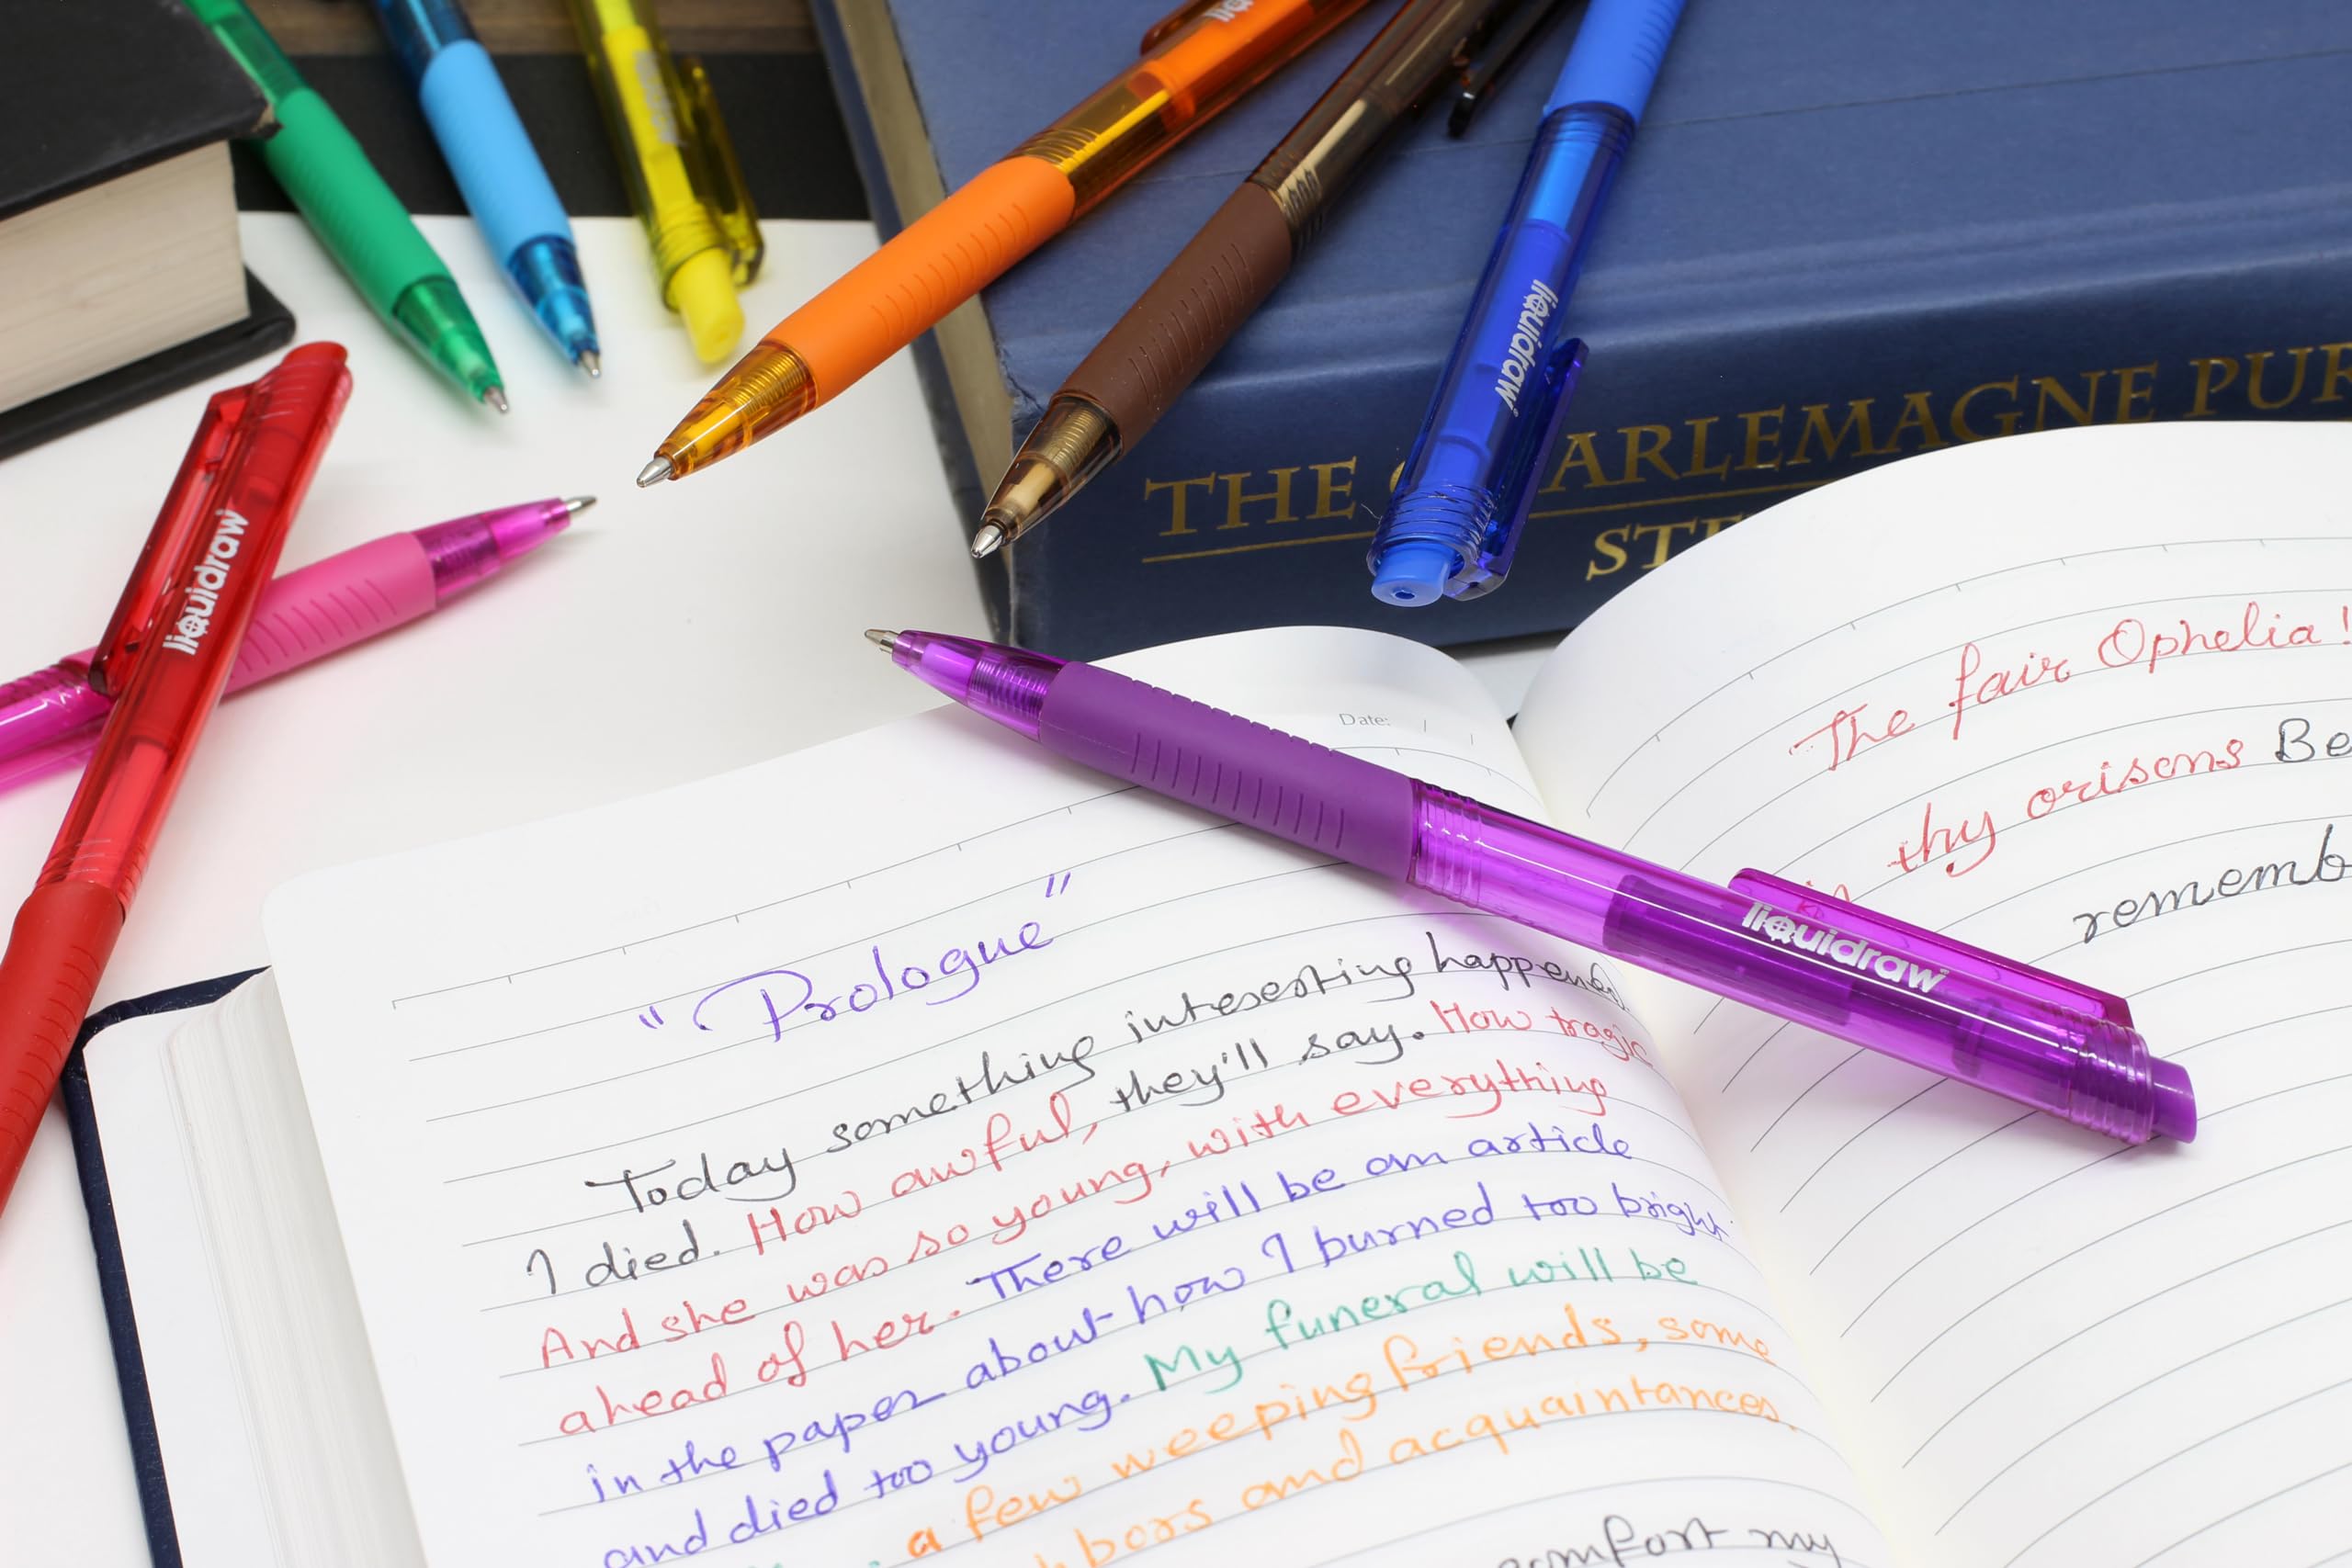 liquidraw
liquidraw
THE ARLEMAGNE PUR
liquidraw
Date: / /
"Prologue"
Today something interesting happened
I died. How awful, they'll say. How tragic
And she was so young, with everything
ahead of her. There will be an article
in the paper about how I burned too bright
and died too young. My funeral will be
a few weeping friends, some
bors and acquaintances
comfort my
The fair Ophelia!
in thy orisons Be
rememb